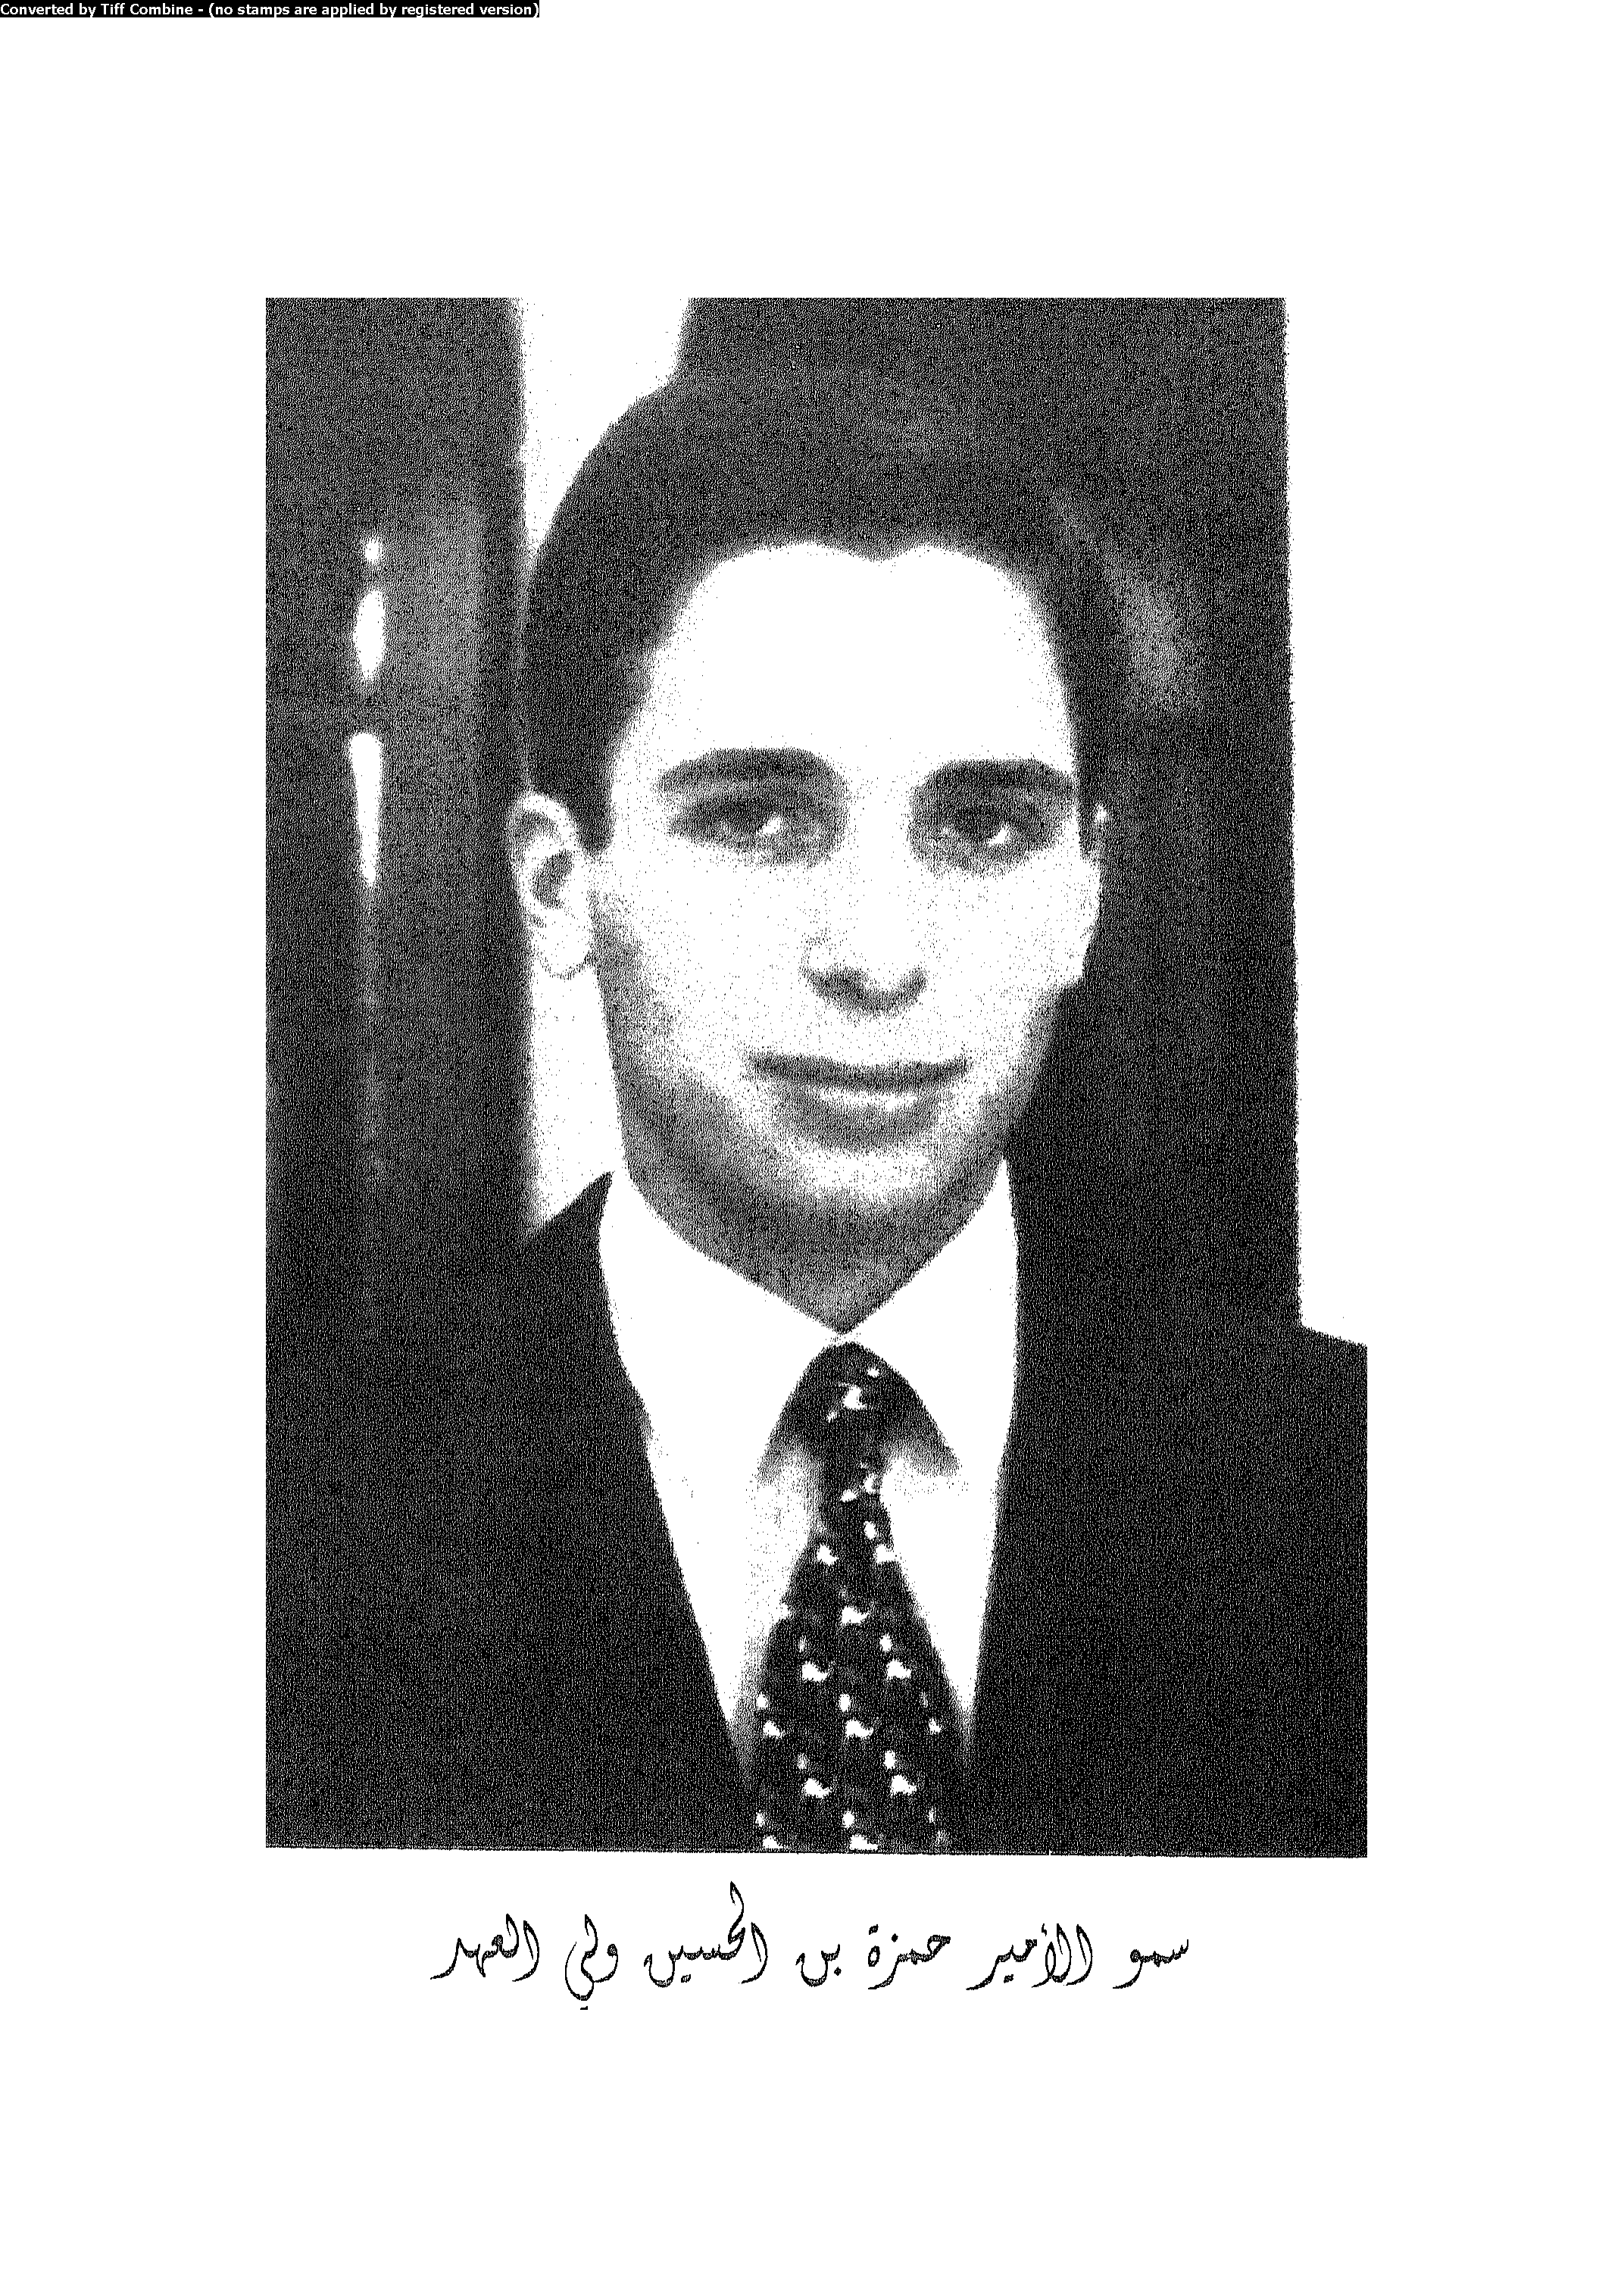 Converted by Tiff Combine - (no stamps are applied by registered version)
سمو الأمير حمزة بن الحسين ولي العهد